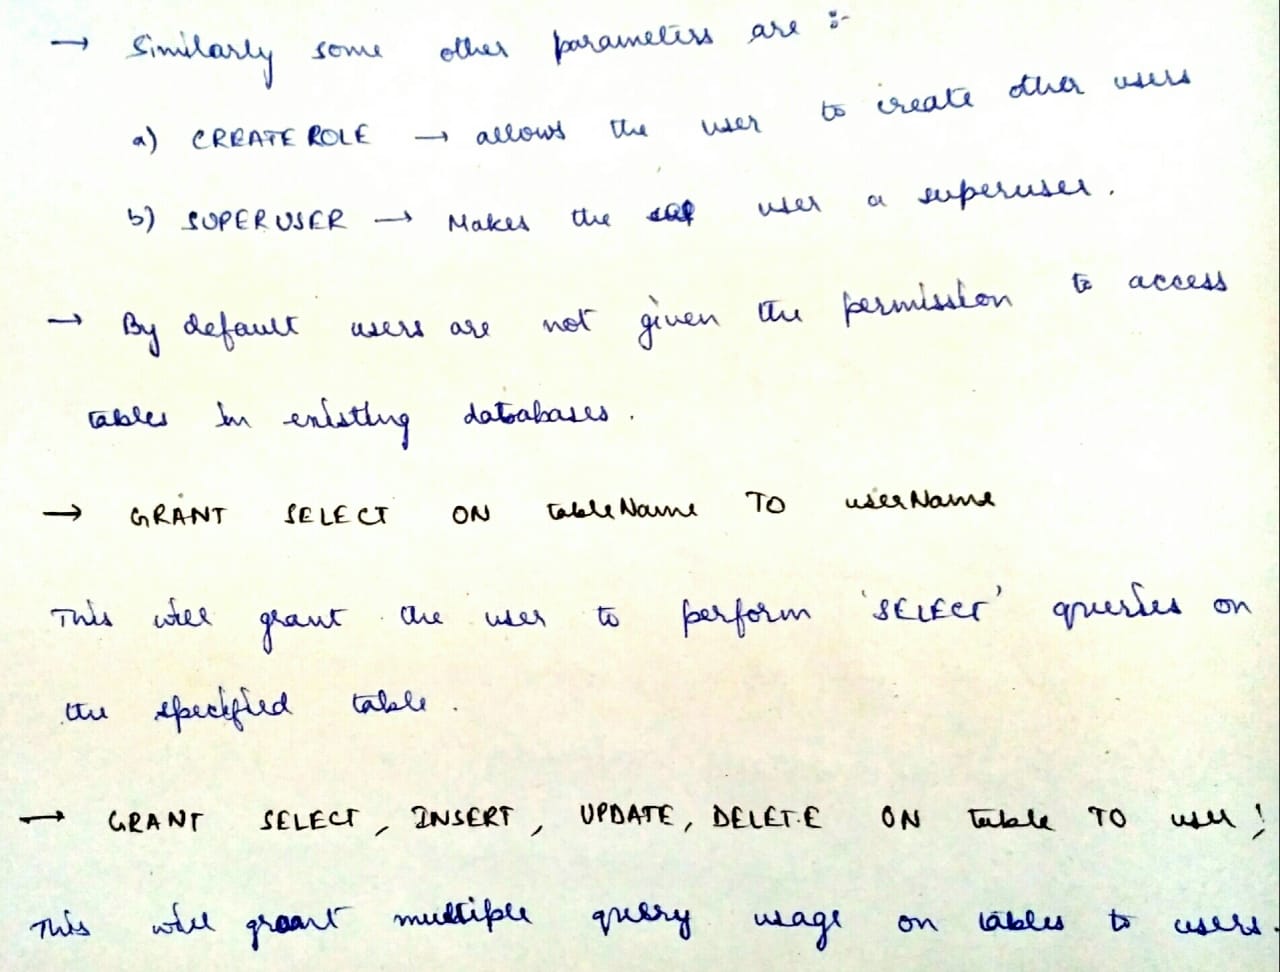 → Similarly some other parameters are :-
a) CREATE ROLE → allows the user to create other users
b) SUPERUSER → Makes the user a superuser.
→ By default users are not given the permission to access
tables in existing databases.
→ GRANT SELECT ON tableName TO userName
This will grant the user to perform 'SELECT' queries on
the specified table.
→ GRANT SELECT, INSERT, UPDATE, DELETE ON table TO user;
This will grant multiple query usage on tables to users.